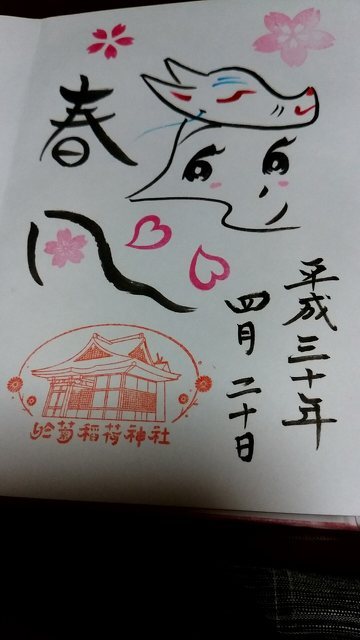 平成三十年
四月二十日
春
於菊稲荷神社